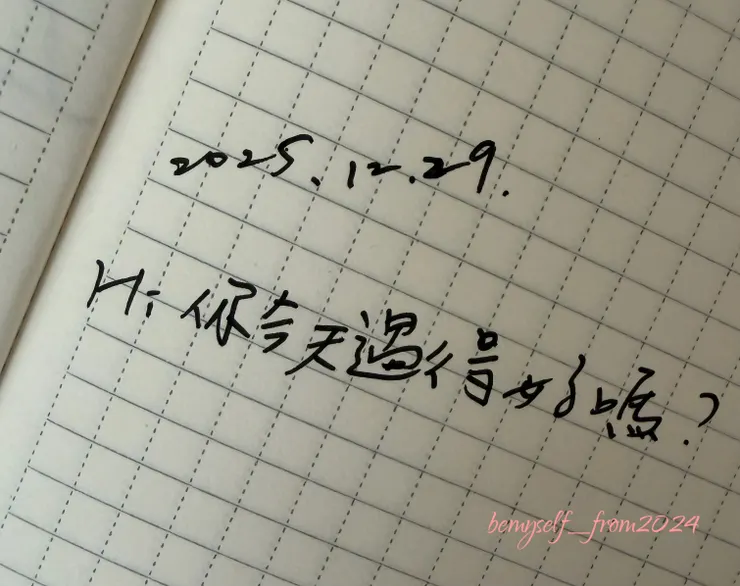 2025.12.29.
Hi 你今天過得好嗎?
bemyself_from2024